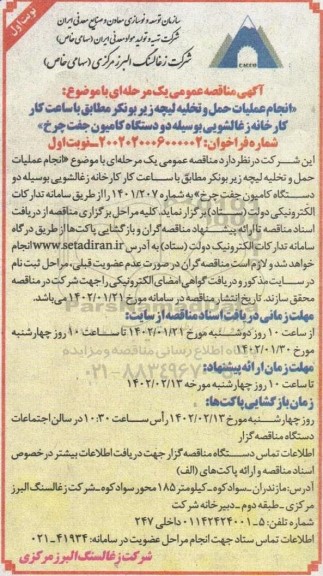 نوبت اول
سازمان توسعه و نوسازی معادن و صنایع معدنی ایران
شرکت تهیه و تولید مواد معدنی ایران (سهامی خاص)
شرکت زغالسنگ البرز مرکزی (سهامی خاص)
آگهی مناقصه عمومی یک مرحله‌ای با موضوع:
«انجام عملیات حمل و تخلیه لیچه زیر بونکر مطابق با ساعت کار
کارخانه زغالشویی بوسیله دو دستگاه کامیون جفت چرخ»
شماره فراخوان: ۲۰۰۲۰۲۰۰۰۶۰۰۰۰۰۲-نوبت اول
این شرکت در نظر دارد مناقصه عمومی یک مرحله‌ای با موضوع «انجام عملیات
حمل و تخلیه لیچه زیر بونکر مطابق با ساعت کار کارخانه زغالشویی بوسیله دو
دستگاه کامیون جفت چرخ» به شماره ۱۴۰۱/۲۰۷ را از طریق سامانه تدارکات
الکترونیکی دولت (ستاد) برگزار نماید. کلیه مراحل برگزاری مناقصه از دریافت
اسناد مناقصه تا ارائه پیشنهاد مناقصه گران و بازگشایی پاکت‌ها از طریق درگاه
سامانه تدارکات الکترونیکی دولت (ستاد) به آدرس www.setadiran.ir انجام
خواهد شد و لازم است مناقصه گران در صورت عدم عضویت قبلی، مراحل ثبت نام
در سایت مذکور و دریافت گواهی امضای الکترونیکی را جهت شرکت در مناقصه
محقق سازند. تاریخ انتشار مناقصه در سامانه مورخ ۱۴۰۲/۰۱/۲۱ می‌باشد.
مهلت زمانی دریافت اسناد مناقصه از سایت:
از ساعت ۱۰ روز دوشنبه مورخ ۱۴۰۲/۰۱/۲۱ تا ساعت ۱۰ روز چهارشنبه
مورخ ۱۴۰۲/۰۱/۳۰
مهلت زمان ارائه پیشنهاد:
تا ساعت ۱۰ روز چهارشنبه مورخه ۱۴۰۲/۰۲/۱۳
زمان بازگشایی پاکت‌ها:
روز چهارشنبه مورخ ۱۴۰۲/۰۲/۱۳ رأس ساعت ۱۰:۳۰ در سالن اجتماعات
دستگاه مناقصه گزار
اطلاعات تماس دستگاه مناقصه گزار جهت دریافت اطلاعات بیشتر در خصوص
اسناد مناقصه و ارائه پاکت‌های (الف)
آدرس: مازندران-سوادکوه-کیلومتر ۱۸۵ محور سوادکوه-شرکت زغالسنگ البرز
مرکزی - طبقه دوم - دبیرخانه شرکت
شماره تلفن: ۵-۰۱۱۴۲۴۲۴۰۰۱ داخلی ۲۴۷
اطلاعات تماس ستاد جهت انجام مراحل عضویت در سامانه: ۴۱۹۳۴-۰۲۱
شرکت زغالسنگ البرز مرکزی